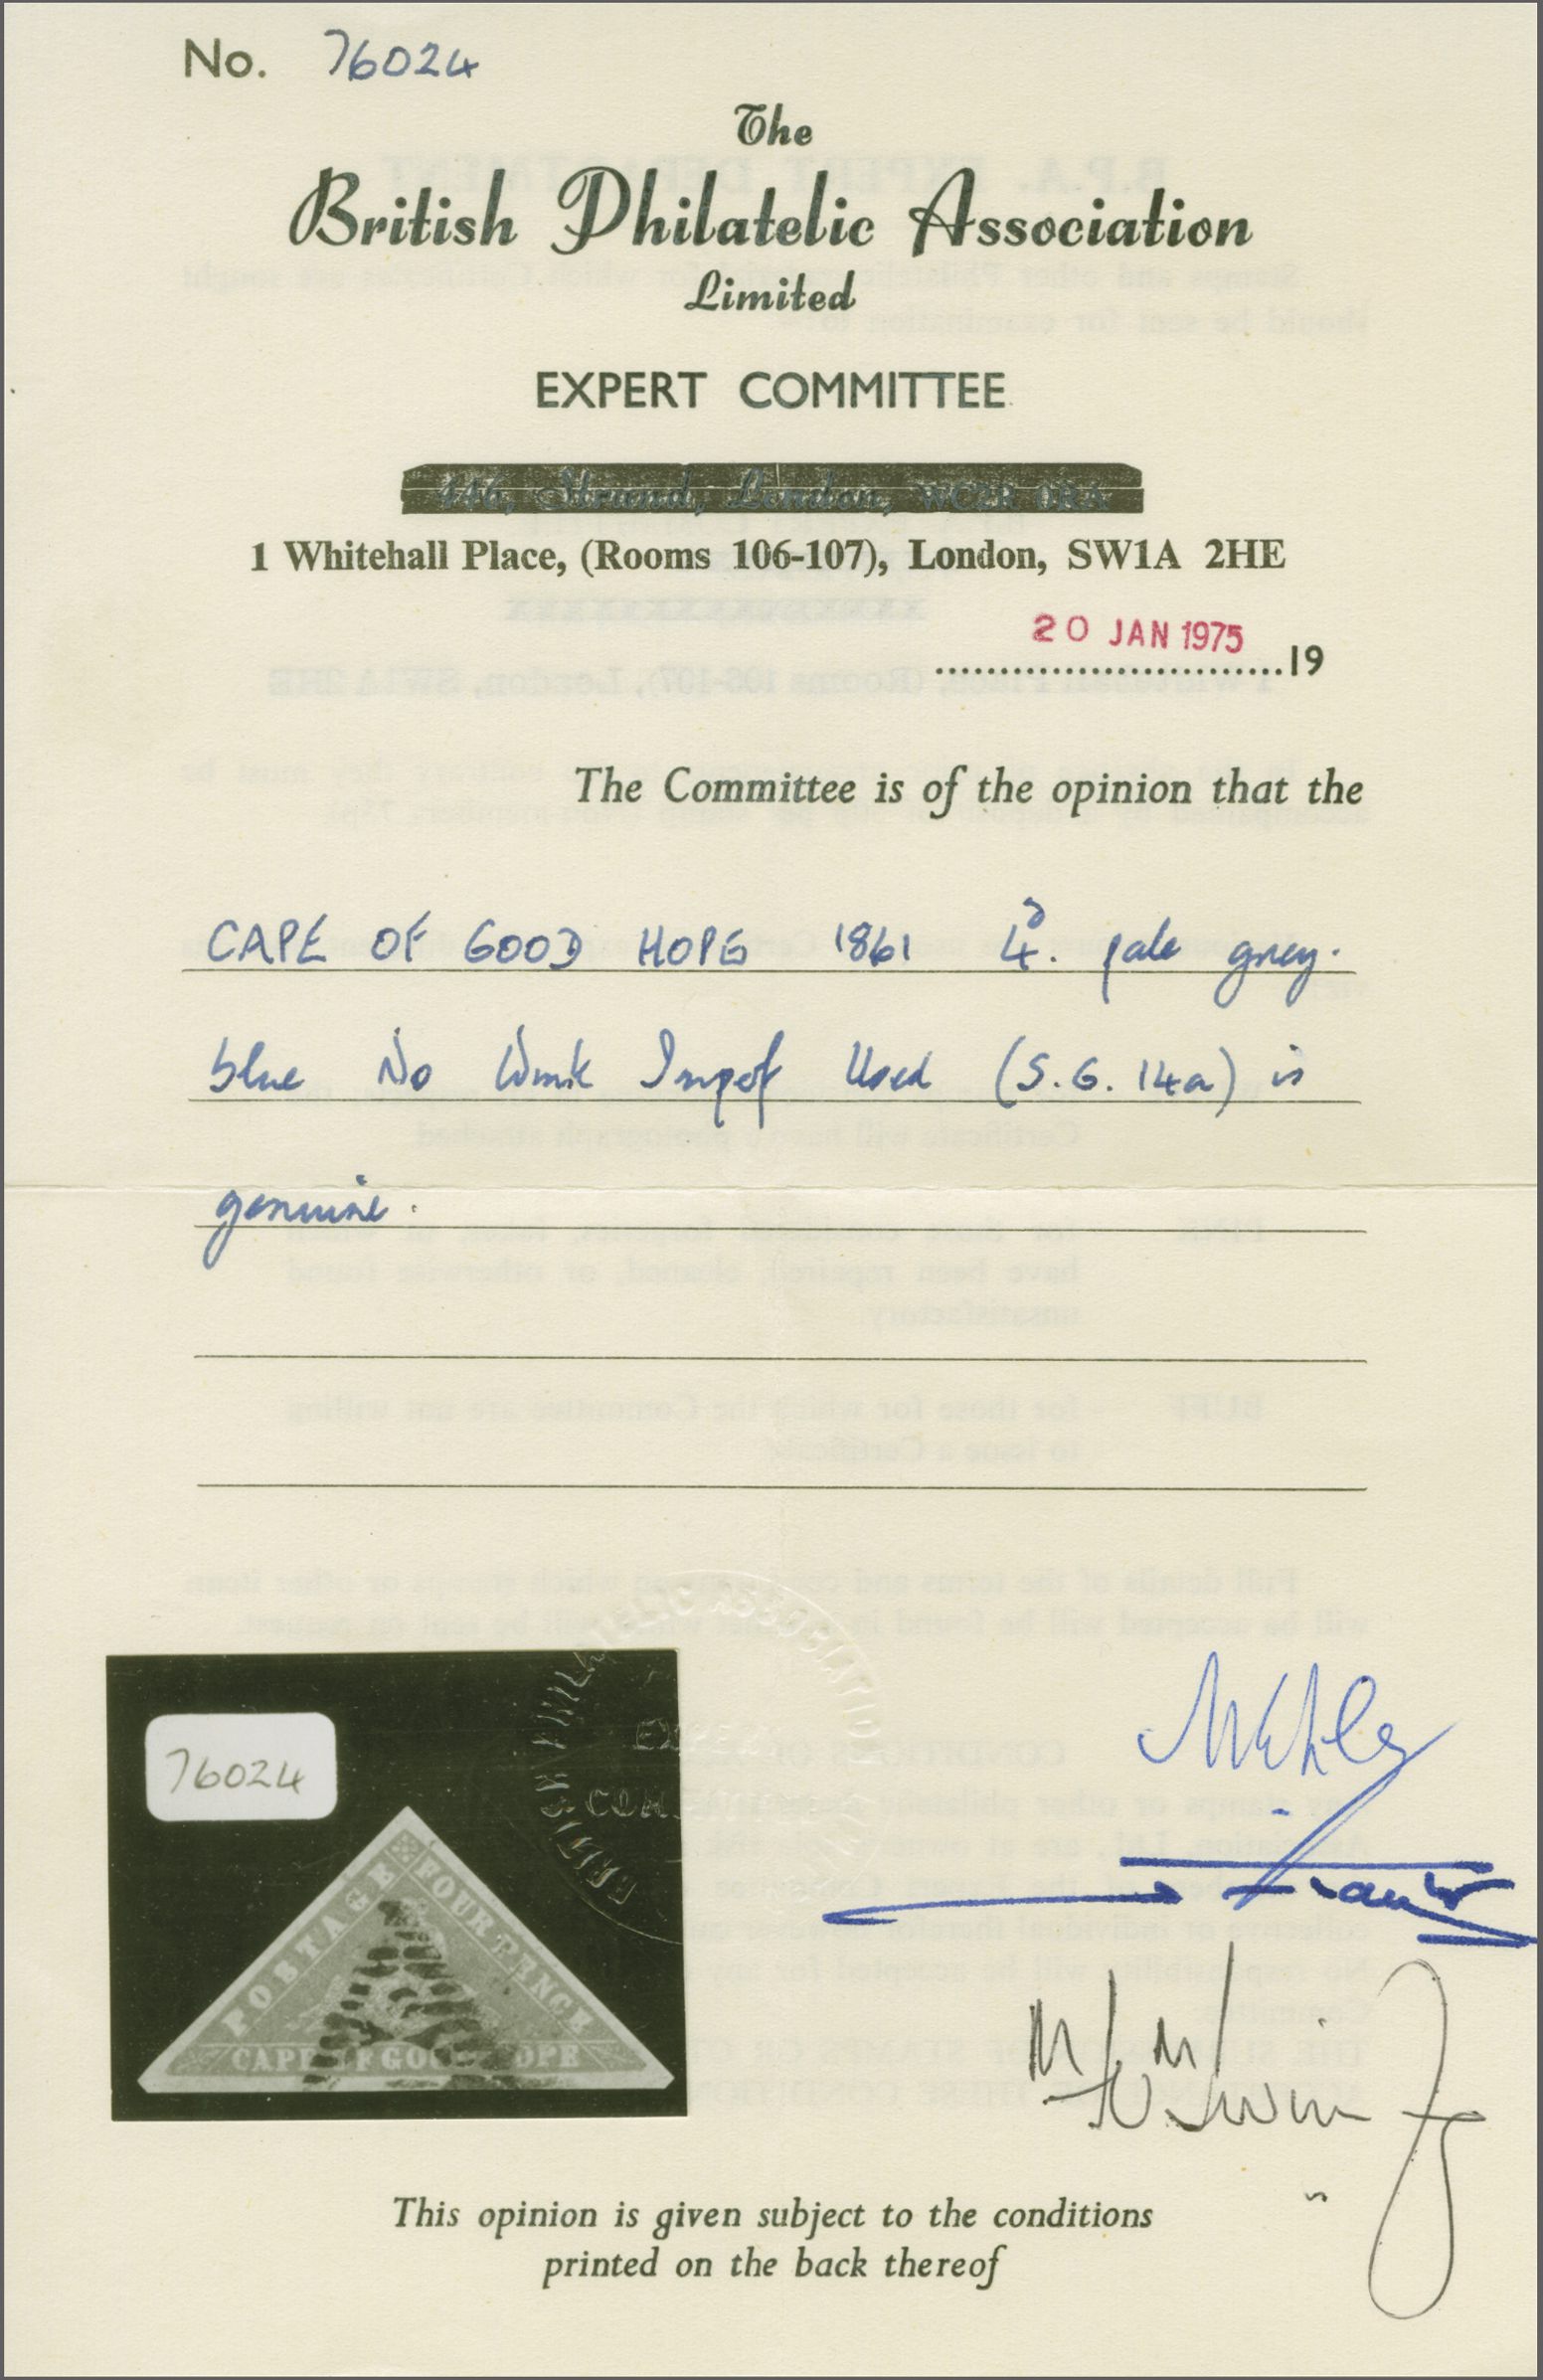 No. 76024
The
British Philatelic Association
Limited
EXPERT COMMITTEE
446, Strand, London, WC2R 0RA
1 Whitehall Place, (Rooms 106-107), London, SW1A 2HE
20 JAN 1975
..........................19
The Committee is of the opinion that the
CAPE OF GOOD HOPE 1861 4d. pale grey.
blue No Wmk Imperf Used (S.G. 14a) is
genuine.
76024
POSTAGE FOUR PENCE
CAPE OF GOOD HOPE
BRITISH PHILATELIC ASSOCIATION
EXPERT
COM
This opinion is given subject to the conditions
printed on the back thereof